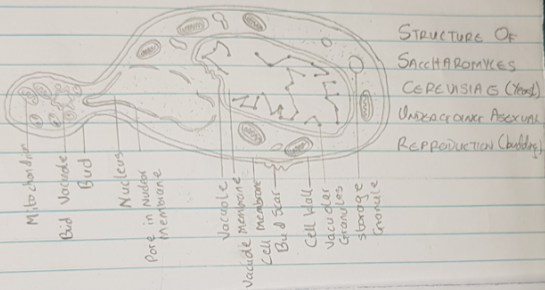 STRUCTURE OF
SACCHAROMYCES
CEREVISIAE (Yeast)
UNDERGOING ASEXUAL
REPRODUCTION (budding)
Mitochondrion
Bud Vacuole
Bud
Nucleus
Pore in Nuclear
Membrane
Vacuole
Vacuole membrane
Cell membrane
Bud Scar
Cell Wall
Vacuolar
Granules
Storage
Granule